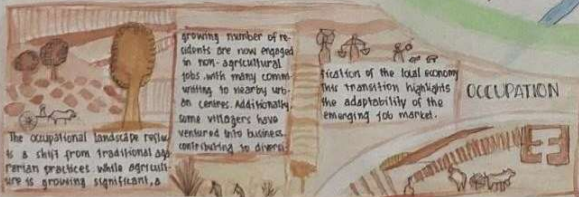 The occupational landscape reflec
ts a shift from traditional aga
rarian practices. while agricult-
ure is growing significant, a
growing number of re-
sidents are now engaged
in non-agricultural
jobs, with many comm-
uting to nearby urb-
an centres. Additionally,
some villagers have
ventured into business,
contributing to diversi-
fication of the local economy
This transition highlights
the adaptability of the
emerging job market.
OCCUPATION